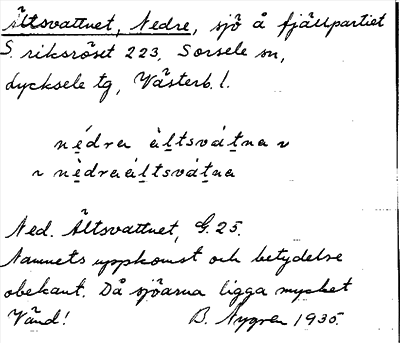 Ältsvattnet, Nedre, sjö å fjällpartiet
S. riksröset 223, Sorsele sn,
Lycksele tg, Västerb. l.
nédra àltsvátna ~
~ nèdraáltsvátna
Ned. Ältsvattnet, G. 25.
Namnets uppkomst och betydelse
obekant. Då sjöarna ligga mycket
Vänd! B. Nygren 1935.